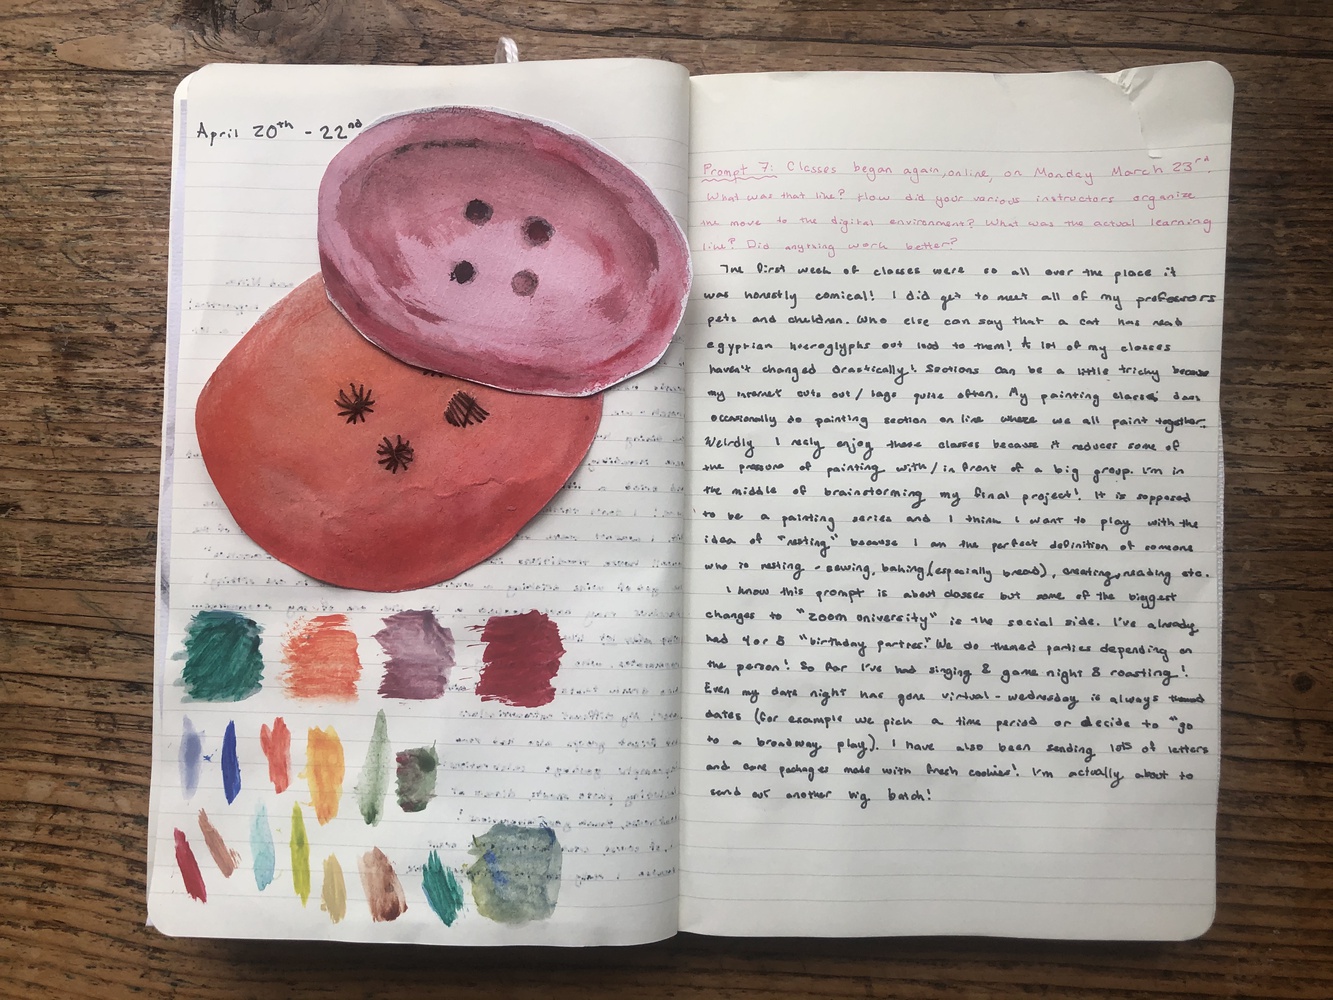 April 20th - 22nd
Prompt 7: Classes began again, online, on Monday March 23rd.
What was that like? How did your various instructors organize
the move to the digital environment? What was the actual learning
like? Did anything work better?
The first week of classes were so all over the place it
was honestly comical! I did get to meet all of my professors
pets and children. Who else can say that a cat has read
egyptian hieroglyphs out loud to them! A lot of my classes
haven't changed drastically! Sections can be a little tricky because
my internet cuts out / lags quite often. My painting classes does
occasionally do painting section on line where we all paint together.
Weirdly I really enjoy those classes because it reduces some of
the pressure of painting with / in front of a big group. I'm in
the middle of brainstorming my final project! It is supposed
to be a painting series and I think I want to play with the
idea of "nesting" because I am the perfect definition of someone
who is nesting - sewing, baking (especially bread), creating, reading etc.
I know this prompt is about classes but some of the biggest
changes to "zoom university" is the social side. I've already
had 4 or 5 "birthday parties." We do themed parties depending on
the person! So far I've had singing & game night & roasting!
Even my date night has gone virtual - wednesday is always themed
dates (for example we pick a time period or decide to "go
to a broadway play). I have also been sending lots of letters
and care packages made with fresh cookies! I'm actually about to
send out another big batch!